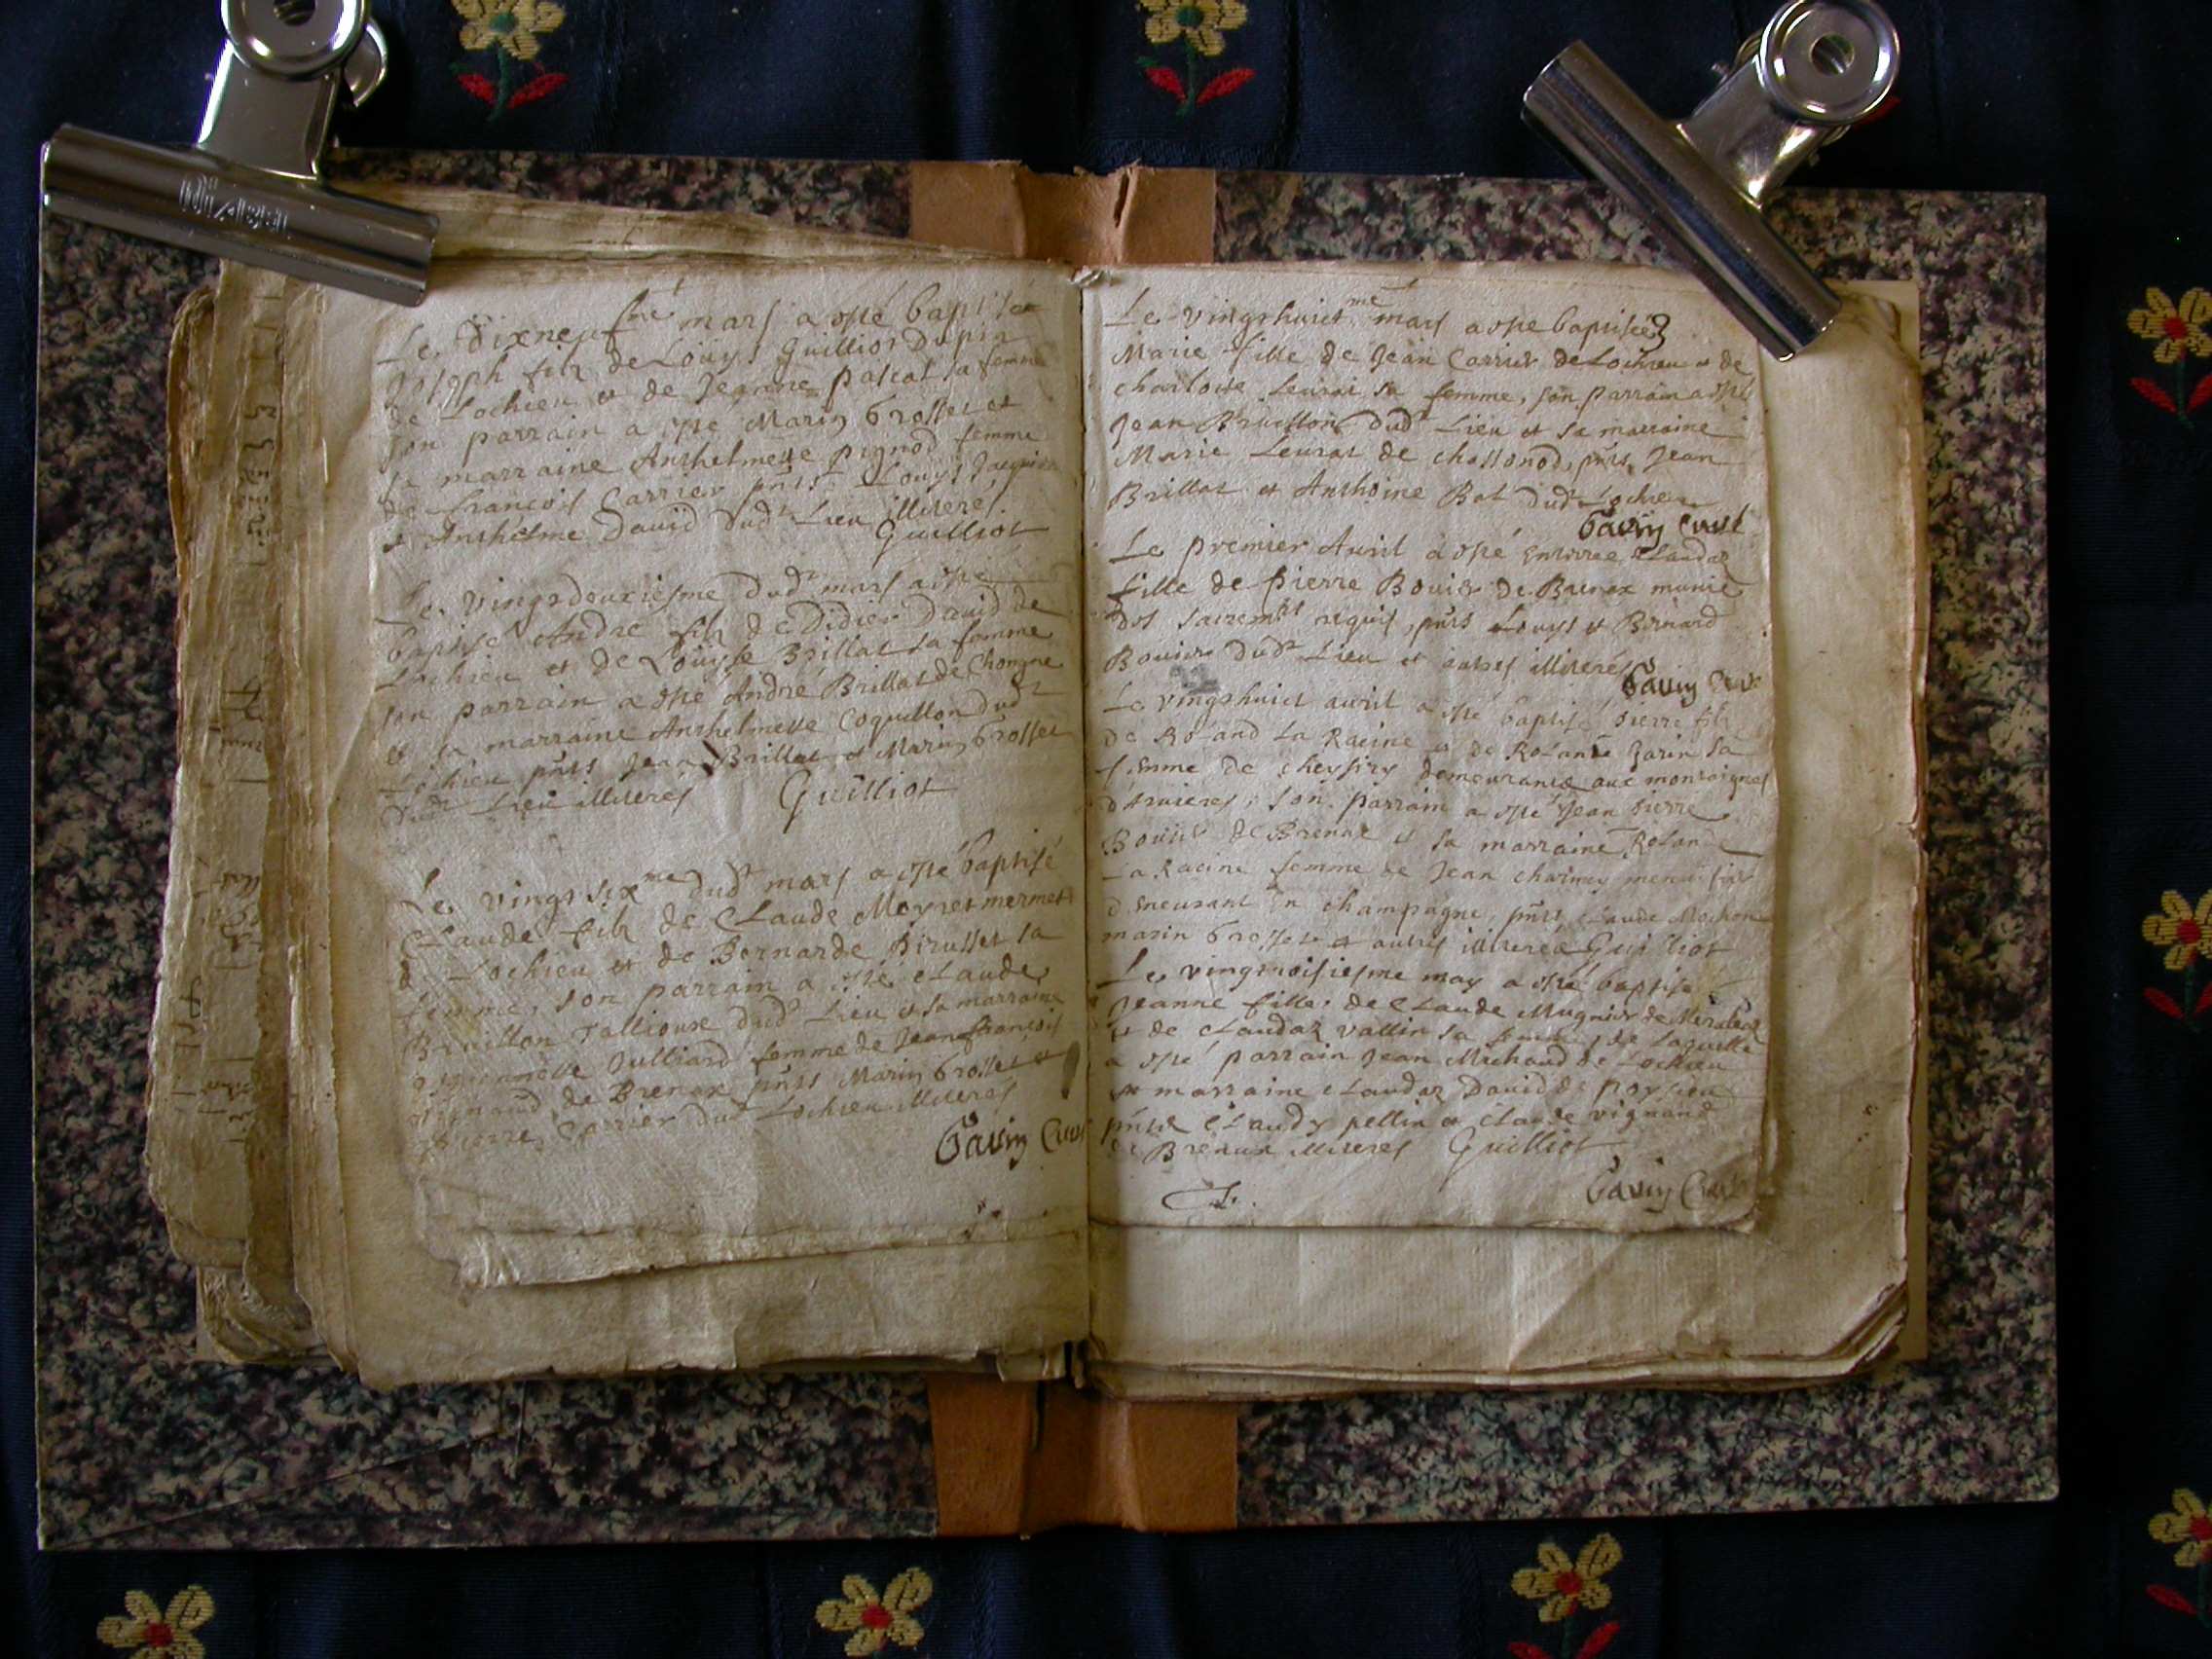 Le dixneufme mars a esté baptisé
Joseph filz de Loüys Guilliot Dupin
de Lochieu et de Jeanne pascal sa femme
son parrain a esté Marin Grosset et
sa marraine Anthelmette pignod femme
de francois Carrier pnts Loüys Jacquin
et Anthelme David dudt Lieu illiterés
Guilliot
Le vingtdeuxiesme dudt mars a esté
baptisé André filz de Didier David de
Lochieu et de Loüyse Brillat sa femme
son parrain a esté André Brillat de Chongne
et sa marraine Anthelmette Coquillon dudt
Lochieu pnts Jean Brillat et Marin Grosset
dudt Lieu illiterés Guilliot
Le vingt sixme dudt mars a esté baptisé
Claude filz de Claude Meyret mermet
de Lochieu et de Bernarde Pirusset sa
femme, son parrain a esté Claude
Bruillon dudt Lieu et sa marraine
Julliard femme de Jean francois
de Brenax pnts Marin Grosset et
Pierre Carrier dudt Lochieu illiterés
Gavin Curé
Le vingthuictme mars a esté baptisée
Marie fille de Jean Carrier de Lochieu et de
charlotte Leurat sa femme, son parrain a esté
Jean Bruillon dudt Lieu et sa marraine
Marie Leurat de chassonod, pnts Jean
Brillat et Anthoine Bal dudt Lochieu
Gavin Curé
Le premier Avril a esté enterrée Claudaz
fille de Pierre Bovier de Brenax munie
des sacremts requis, pnts Louys et Bernard
Bovier dudt Lieu et autres illiterés
Gavin Curé
Le vingthuict avril a esté baptisé Pierre filz
de Roland La Racine et de Rolande Jarin sa
femme de cheysiry demeurants aux montaignes
d'Arvieres, son parrain a esté Jean Pierre
Bovier de Brenax et sa marraine Rolande
La Racine femme de Jean charmey menuisier
demeurant en champagne, pnts Claude Mochon
marin Grosset et autres illiterés Guilliot
Le vingtroisiesme may a esté baptisé
Jeanne fille de Claude Mugnier de
et de Claudaz vallin sa femme, de laquelle
a esté parrain Jean Michaud de Lochieu
et marraine Claudaz David de poysieu
pnts Claudy pellin et Claude vignand
de Brenax illiterés Guilliot
Gavin Curé